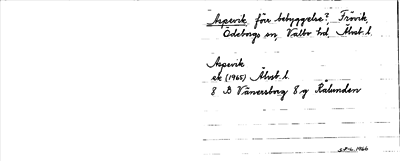 Aspevik, förr bebyggelse?, Trövik,
Ödeborgs sn, Valbo hd, Älvsb. l.
Aspevik
ek (1965) Älvsb. l.
8 B Vänersborg 8 g Rålunden
1966